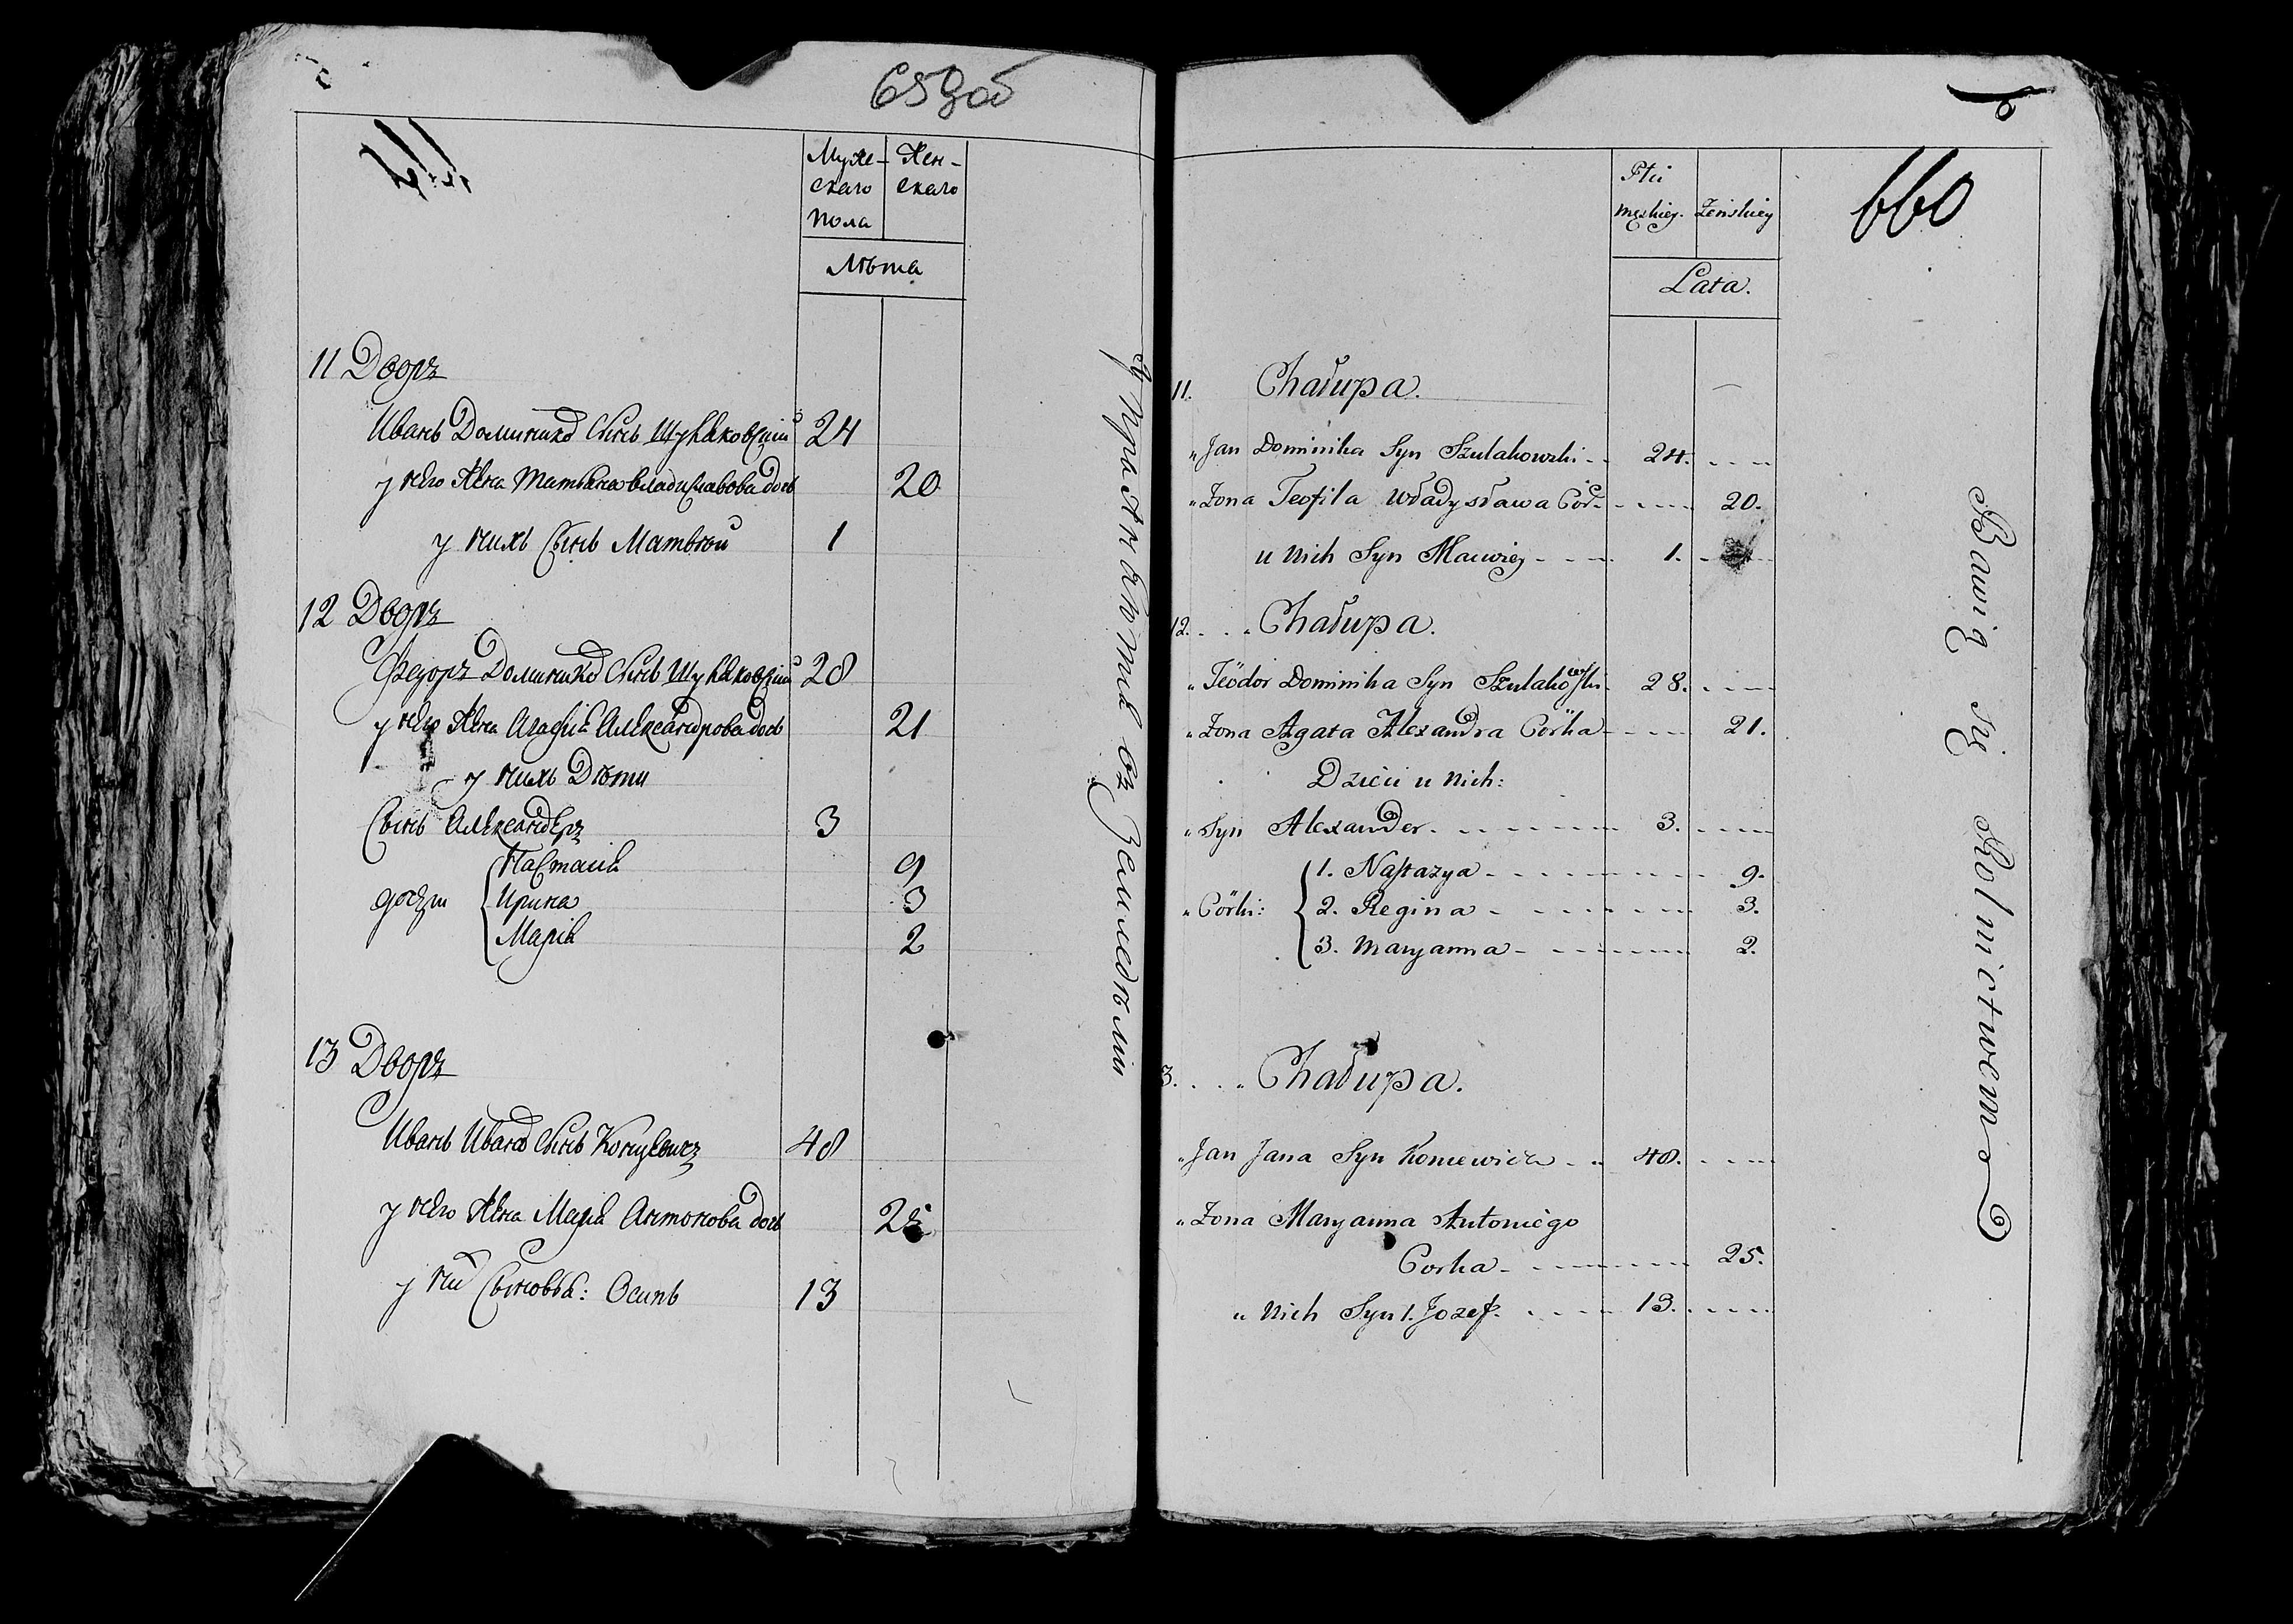 659об
Муже-
скаго
пола
Жен-
скаго
Лѣта
11 Дворъ
Иванъ Доминико Сынъ Шуляковскій 24
у него Жена Татьяна владиславова дочь 20
у нихъ Сынъ Матвѣй 1
12 Дворъ
Федоръ Доминико Сынъ Шуляковскій 28
у него Жена Агафия Александрова дочь 21
у нихъ Дѣти
Сынъ Александеръ 3
дочери
Настасия 9
Ирина 3
Мария 2
13 Дворъ
Иванъ Ивано Сынъ Концевичъ 48
у него Жена Мария Антонова дочь 25
у них Сыновья: Осипъ 13
660
Płci
męskiey.
Zeńskiey
Lata.
11. Chałupa.
„Jan Dominika Syn Szulakowski 24.
„Zona Teofila Władysława Cór. 20.
u Nich Syn Maciej 1.
12. Chałupa.
„Teodor Dominika Syn Szulakowski 28.
„Zona Agata Alexandra Córka 21.
Dzieci u Nich:
„Syn Alexander 3.
„Córki:
1. Nastazya 9.
2. Regina 3.
3. Maryanna 2.
3. Chałupa.
„Jan Jana Syn Koncewicz 48.
„Zona Maryanna Antoniego
Corka 25.
u Nich Syn 1. Jozef 13.
Bawią się Rolnictwem